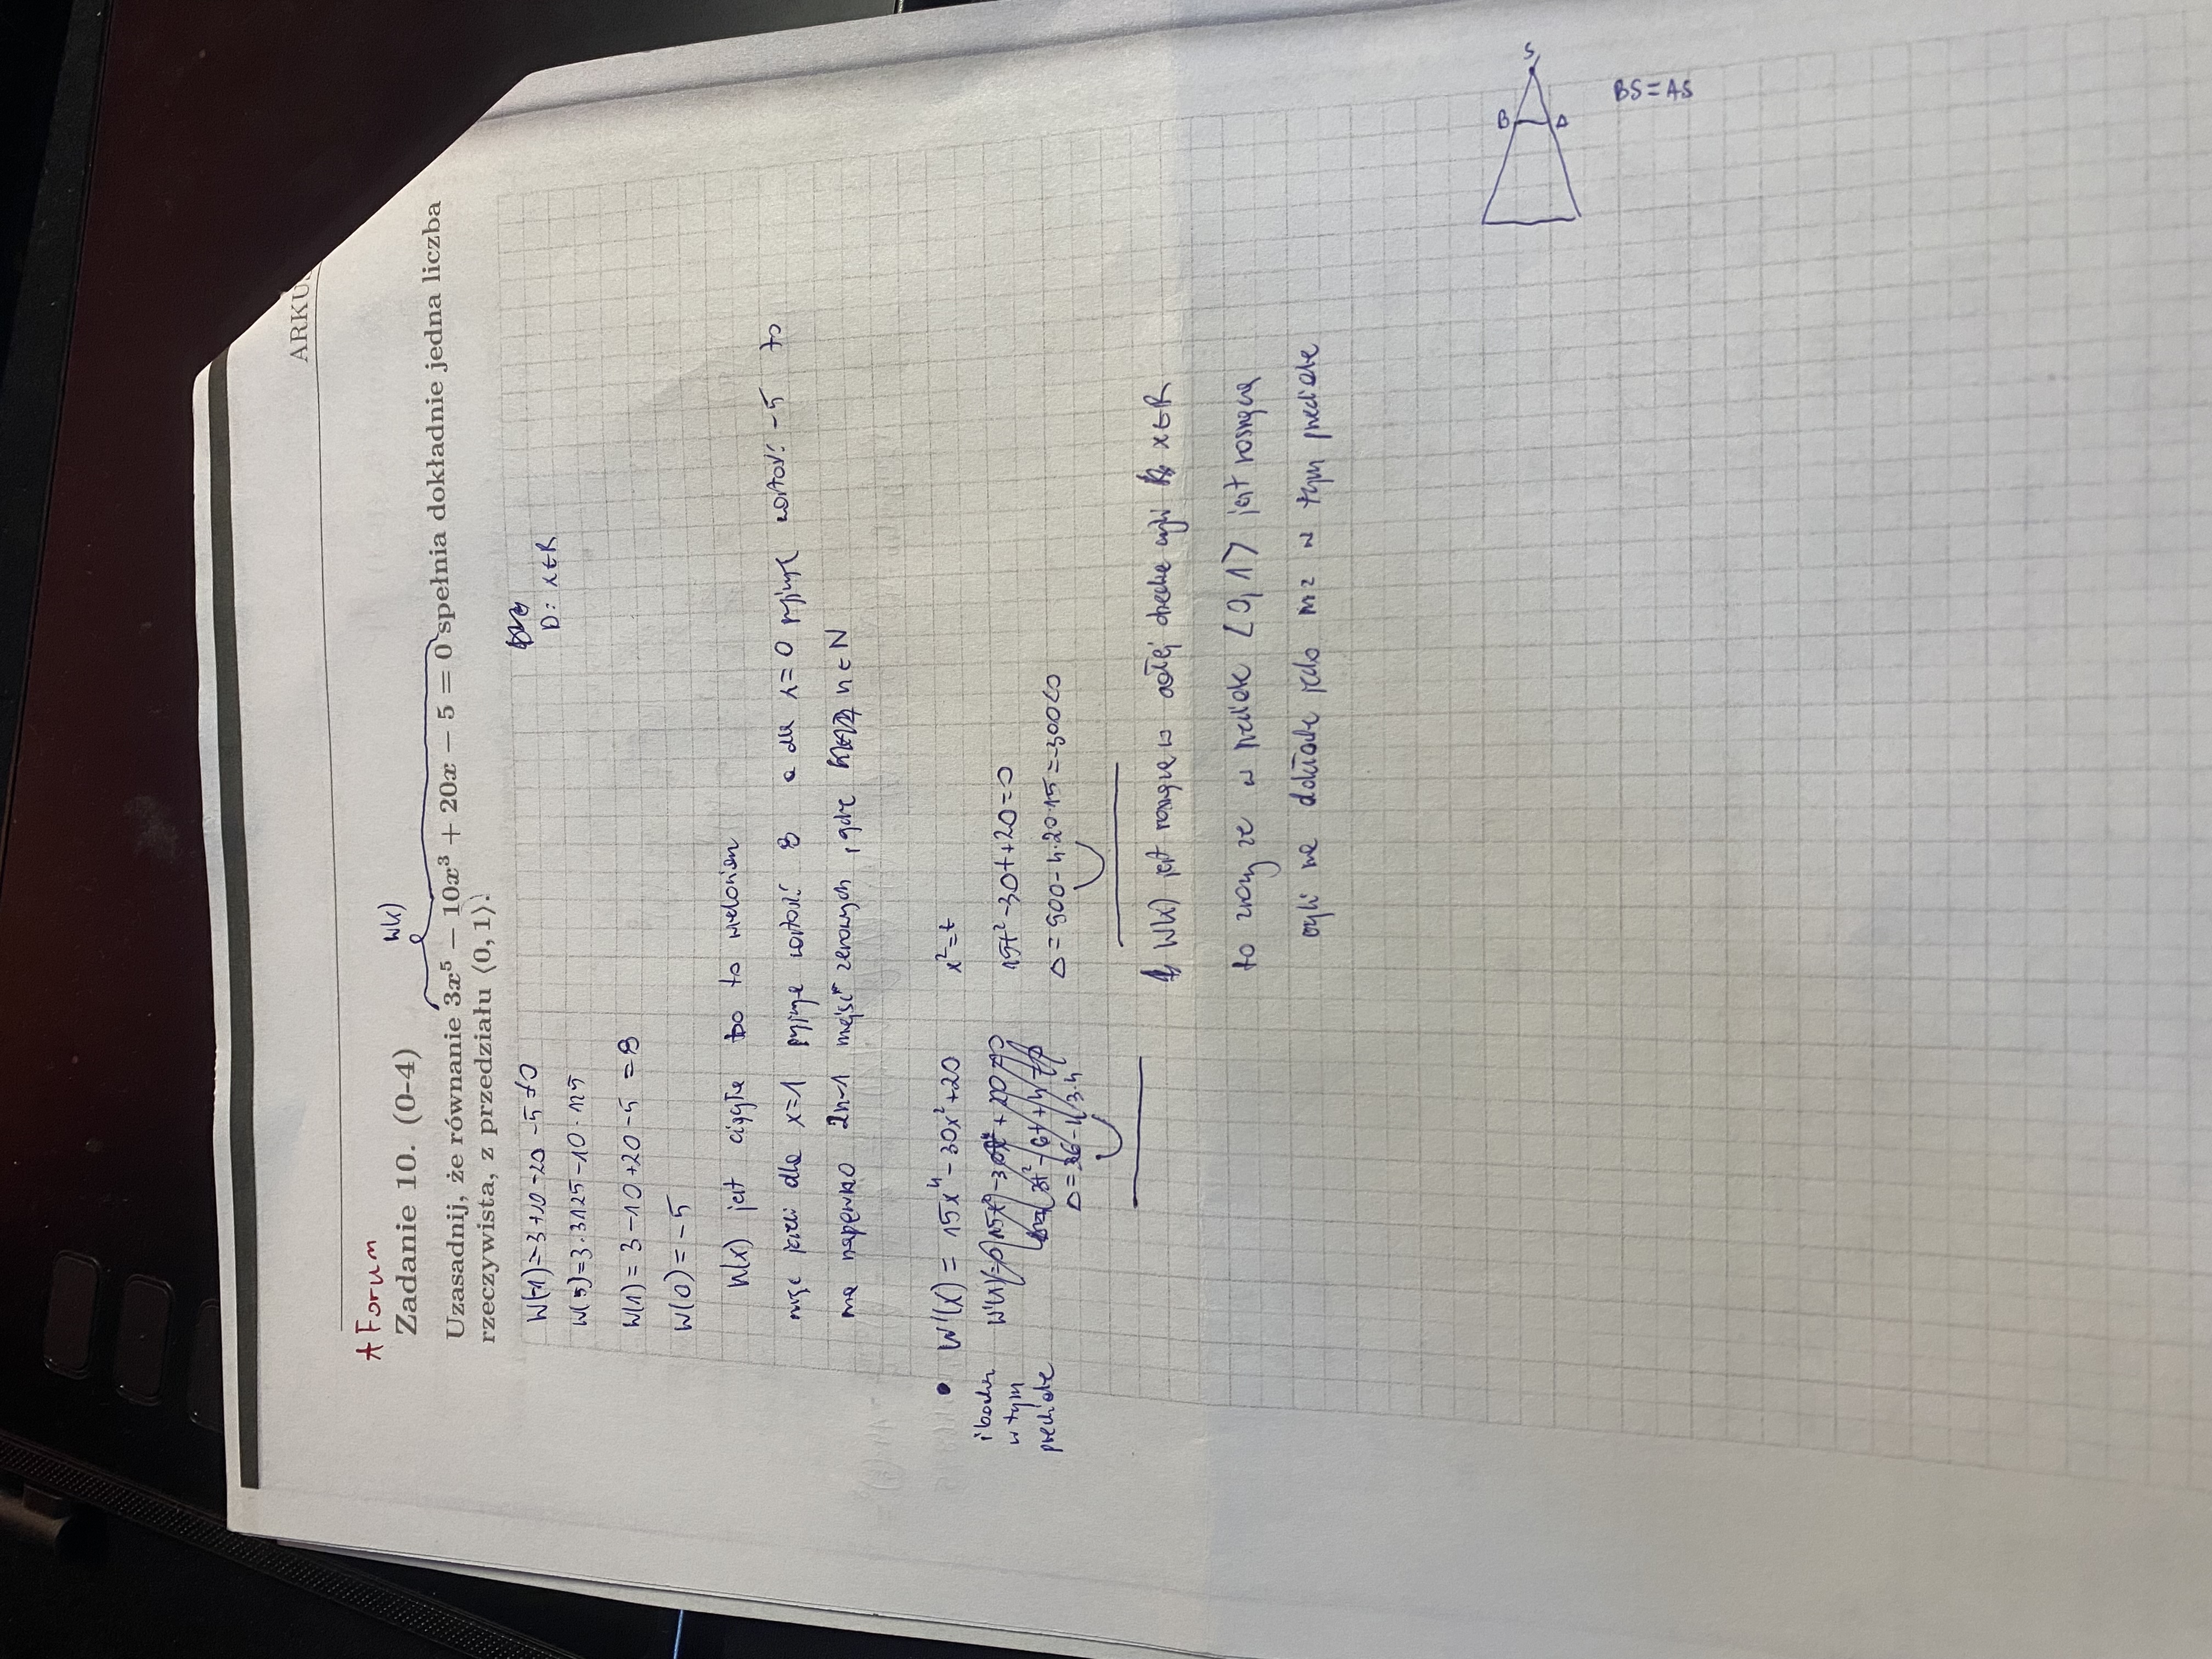 ARKU
A Forum
Zadanie 10. (0-4)
W(x)
Uzasadnij, że równanie 3x⁵ − 10x³ + 20x − 5 = 0 spełnia dokładnie jedna liczba
rzeczywista, z przedziału ⟨0, 1⟩.
D: x∈R
W(5)=3·3125-10·125
W(1) = 3-10+20-5 = 8
W(0) = -5
W(x) jest ciągłe bo to wielomian
więc jeżeli dla x=1 przyjmuje wartość 8 a dla x=0 przyjmuje wartość -5 to
ma napewno 2n-1 miejsc zerowych, gdzie n∈N
i badam
w tym
przedziale
• W'(x) = 15x⁴-30x²+20 x²=t
15t²-30t+20=0
Δ=900-4·20·15=-300<0
W(x) jest rosnące w całej dziedzinie czyli x∈R
to znaczy że w przedziale [0,1⟩ jest rosnąca
czyli ma dokładnie jedno mz w tym przedziale
S
B
BS=AS